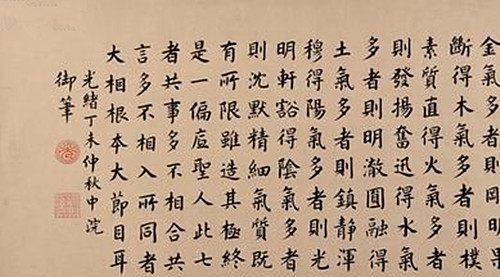 金氣多者則剛明果
斷得木氣多者則樸
素質直得火氣多者
則發揚奮迅得水氣
多者則明澈圓融得
土氣多者則鎮靜渾
穆得陽氣多者則光
明軒豁得陰氣多者
則沈默精細氣質既
有所限雖造其極終
是一偏底聖人此七
者共事多不相合共
言多不相入所同者
大相根夲大節目耳
光緒丁未仲秋中浣
御筆